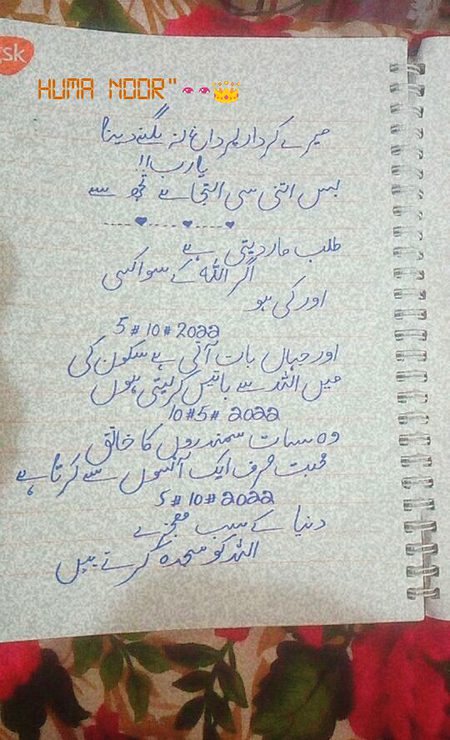 gsk
HUMA NOOR"👁️👁️👑
میرے کردار پر داغ نہ لگنے دینا
یا رب!!
بس اتنی سی التجا ہے تجھ سے
طلب مار دیتی ہے
اگر اللہ کے سوا کسی
اور کی ہو
5#10#2022
اور جہاں بات آتی ہے سکون کی
میں اللہ سے باتیں کر لیتی ہوں
10#5#2022
وہ سات سمندروں کا خالق
محبت صرف ایک آنسوں سے کرتا ہے
5#10#2022
دنیا کے سب معجزے
اللہ کو سجدہ کرتے ہیں